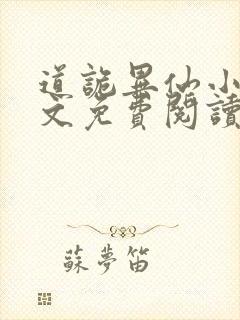 道詭異仙小
文免費閱讀
蘇夢笛